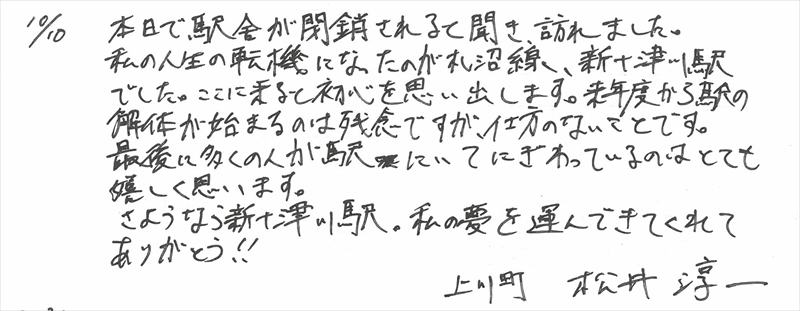 10/10 本日で駅舎が閉鎖されると聞き、訪れました。
私の人生の転機になったのが札沼線、新十津川駅
でした。ここに来ると初心を思い出します。来年度から駅の
解体が始まるのは残念ですが、仕方のないことです。
最後に多くの人が駅にいてにぎわっているのはとても
嬉しく思います。
さようなら新十津川駅。私の夢を運んできてくれて
ありがとう!!
上川町 松井 淳一